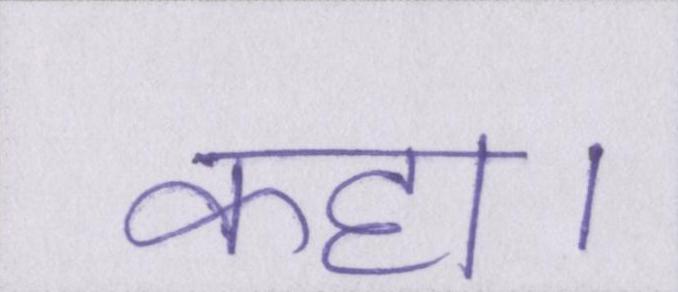 कहा।